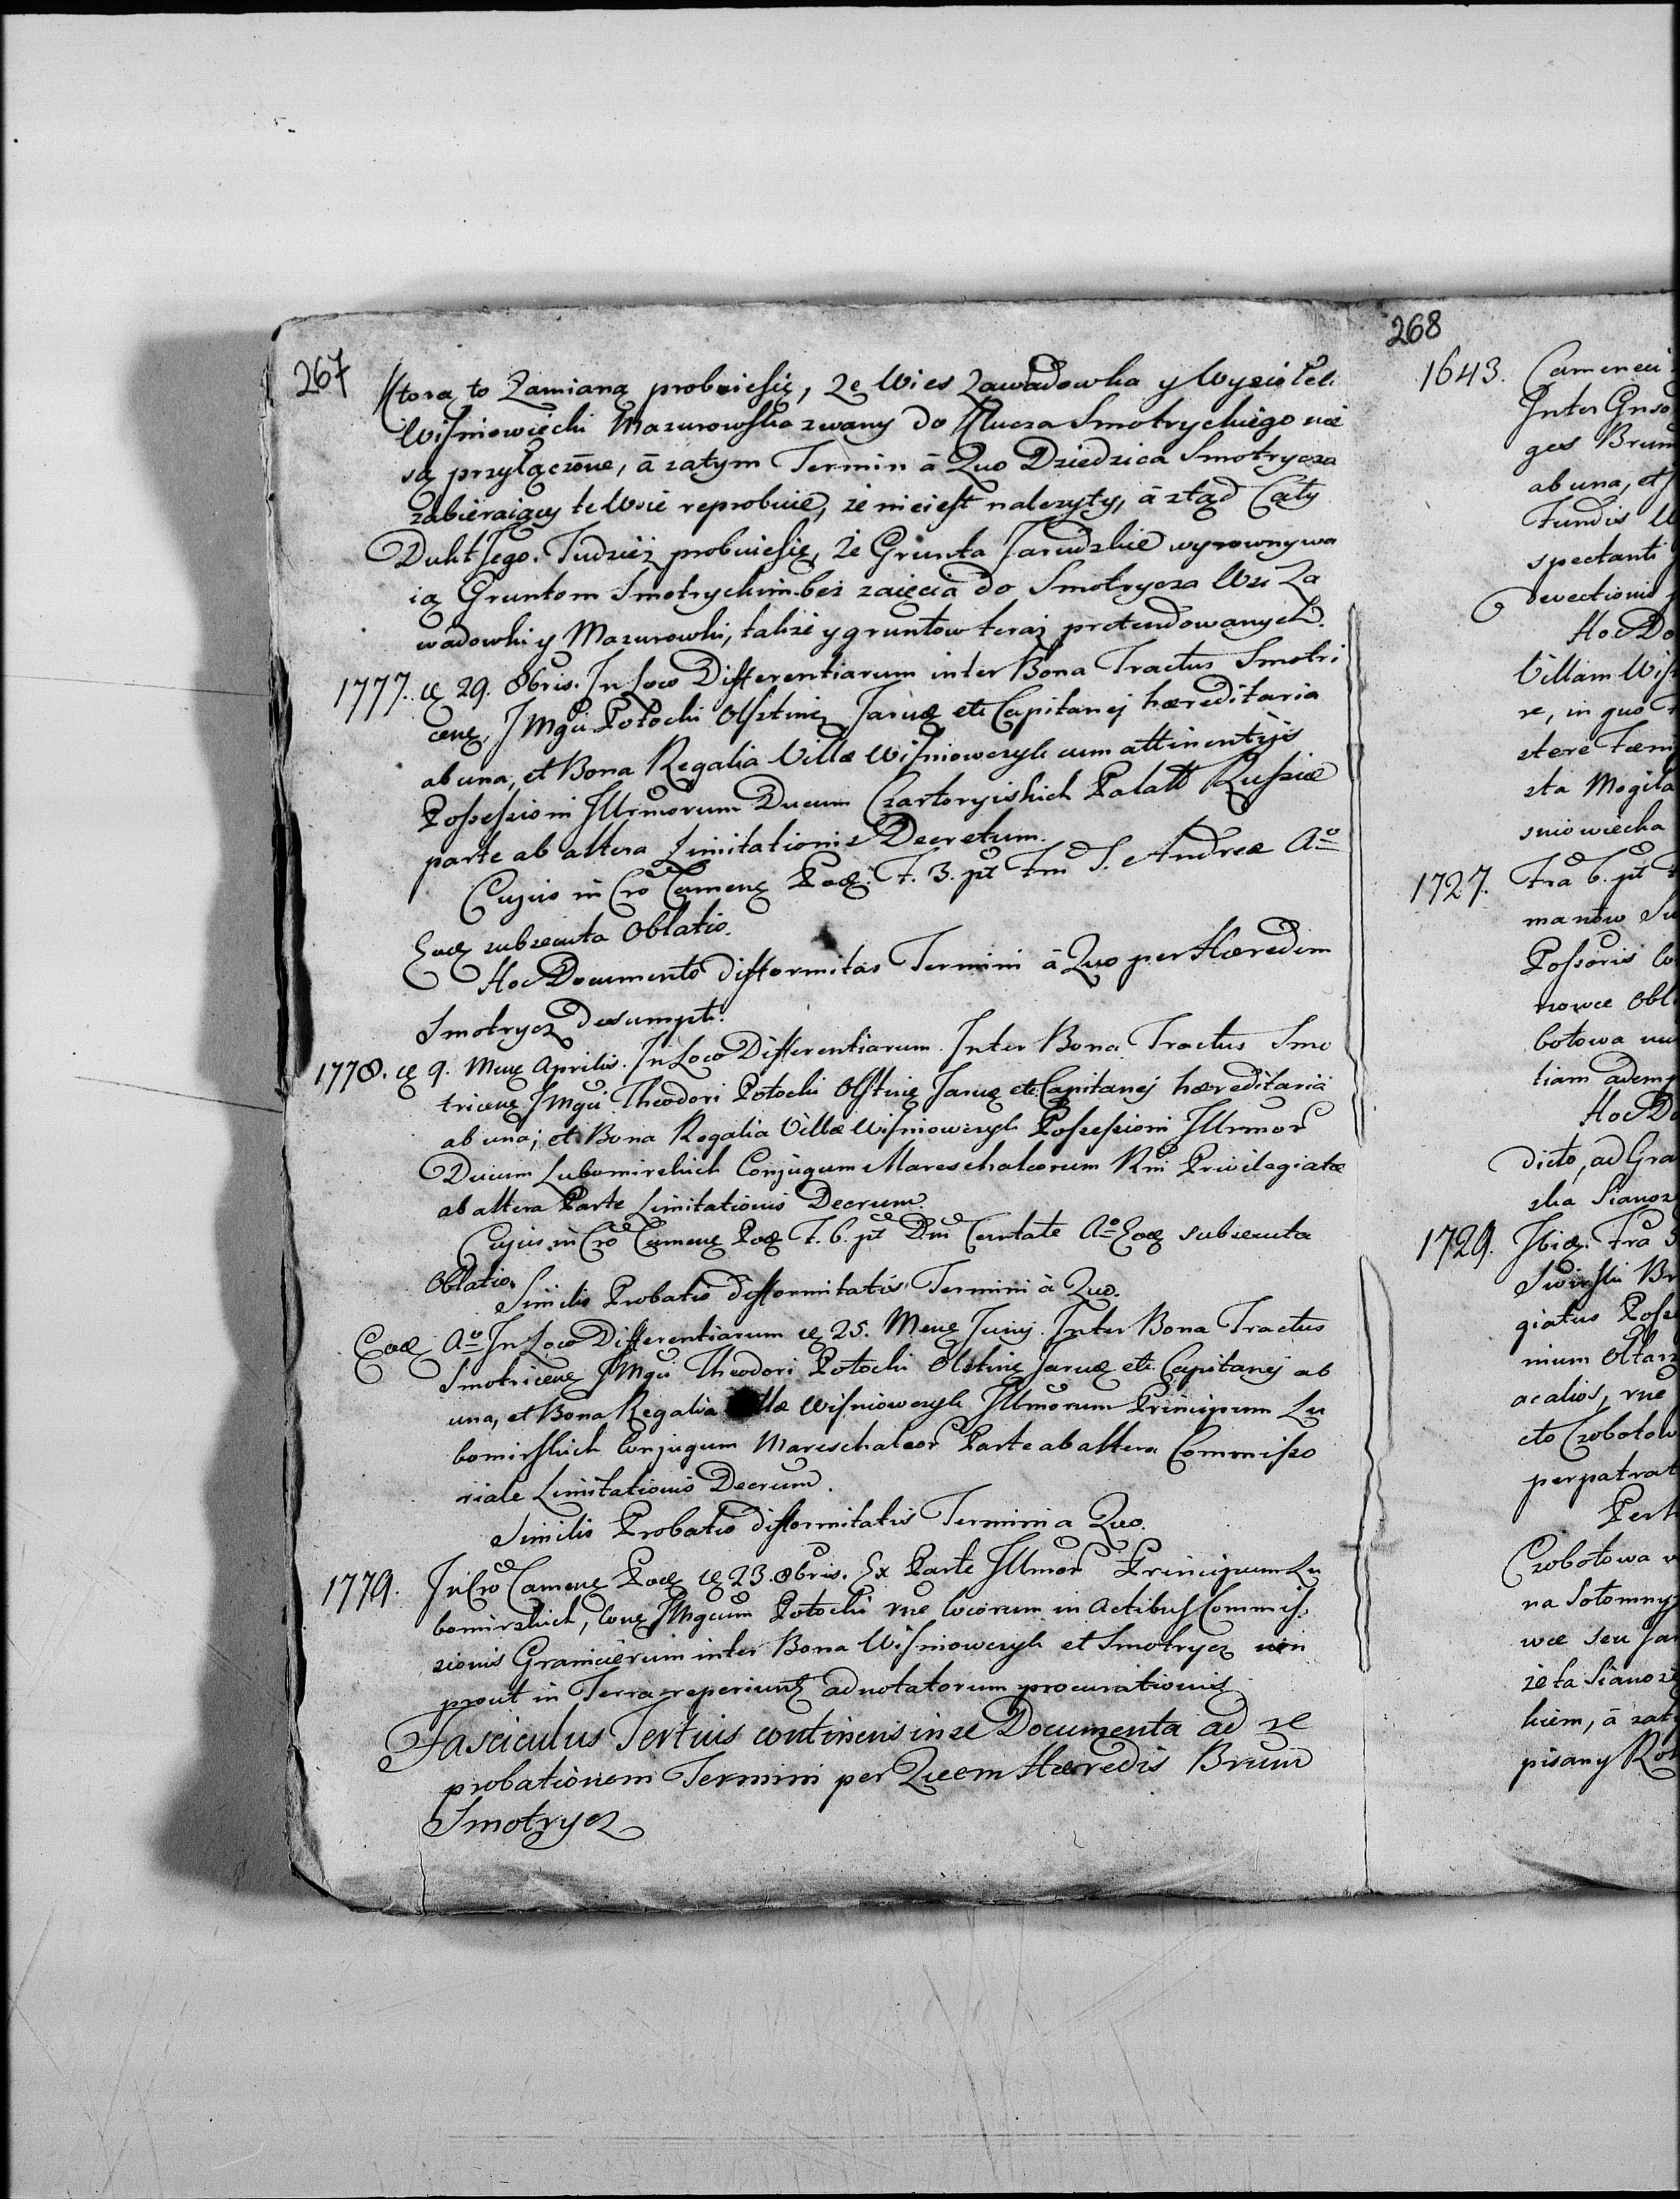 267
Ktorą to Zamianą probuiesię, Ze Wies Zawadowka y Wysiołek
Wiśniowiecki Mazurowka zwany do Klucza Smotryckiego nie
są przyłączone, á zatym Termin á Quo Dziedzica Smotrycza
zabieraiący te Wsie reprobuie, ze nieiest nalezyty, á ztąd Cały
Dukt Jego. Tudziez probuiesię, Ze Grunta Jarudzkie wyrownywa
ią Gruntom Smotryckim bez zaięcia do Smotrycza Wsi Za
wadowki y Mazurowki, takze y gruntow teraz pretendowanych.
1777. 29. 8bris. In Loco Differentiarum inter Bona Tractus Smotri
cenę, JMgci Potocki Olsztinę Jaruę etc Capitanej hæreditaria
ab una, et Bona Regalia Villæ Wiśniowczyk cum attinentijs
Possessioni Illrmorum Ducum Czartoryiskich Palatt Russiæ
parte ab altera Limitationis Decretum.
Cujus in Cro Camenę Podę. F. 3. pt Fm S. Andreæ Ao
Eodę subsecuta Oblatio.
Hoc Documento difformitas Termini á Quo per Hæredem
Smotrycz desumpti.
1778. 9. Menę Aprilis. In Loco Differentiarum Inter Bona Tractus Smo
tricenę JMgci Theodori Potocki Olstinę Jaruę etc Capitanej hæreditaria
ab una; et Bona Regalia Villæ Wiśniowczyk Possessioni Illrmor
Ducum Lubomirskich Conjugum Mareschalcorum Rni Privilegiatæ
ab altera Parte Limitationis Decrum.
Cujus in Cro Camenę Podę F. 6. pt Dm Cantate Ao Eodę subsecuta
Oblatio.
Similis Probatio difformitatis Termini á Quo.
Eodę Ao In Loco Differentiarum 25. Menę Junij. Inter Bona Tractus
Smotricenę JMgci Theodori Potocki Olstinę Jaruę etc. Capitanej ab
una, et Bona Regalia llæ Wiśniowczyk Illmorum Principum Lu
bomirskich Conjugum Mareschalcor Parte ab altera Commisso
riale Limitationis Decrum.
Similis Probatio difformitatis Termini a Quo.
1779. In Cro Camenę Podę 23. 8bris. Ex Parte Illmor Principum Lu
bomirskich, Conę JMgcum Potocki rne locorum in Actibus Commis
sionis Granicierum inter Bona Wiśniowczyk et Smotrycz non
prout in Terra reperiunt adnotatorum procurationis
Fasciculus Tertius continens in se Documenta ad re
probationem Termini per Quem Hæredis Brum
Smotrycz
268
1643. Cameneci
Inter Gnso
ges Brum
ab una, et
Fundis
spectanti
devectionis
Hoc Do
Villam Wis
re, in quo
stere
sta Mogila
sniowiecka
1727. Fra 6. pt
manow
Possoris
nowce Obl
botowa
tiam adem
Hoc Do
dicto, ad Gra
ska Sianoz
1729. Ibidę. Fra
Swirski Br
giatus Poss
nium Oltarz
ac alios, rne
cto Czobotow
perpatrat
Per h
Czobotowa
na Sołomny
wce seu Jar
ze ta Sianoz
kiem, á zat
pisany Ro